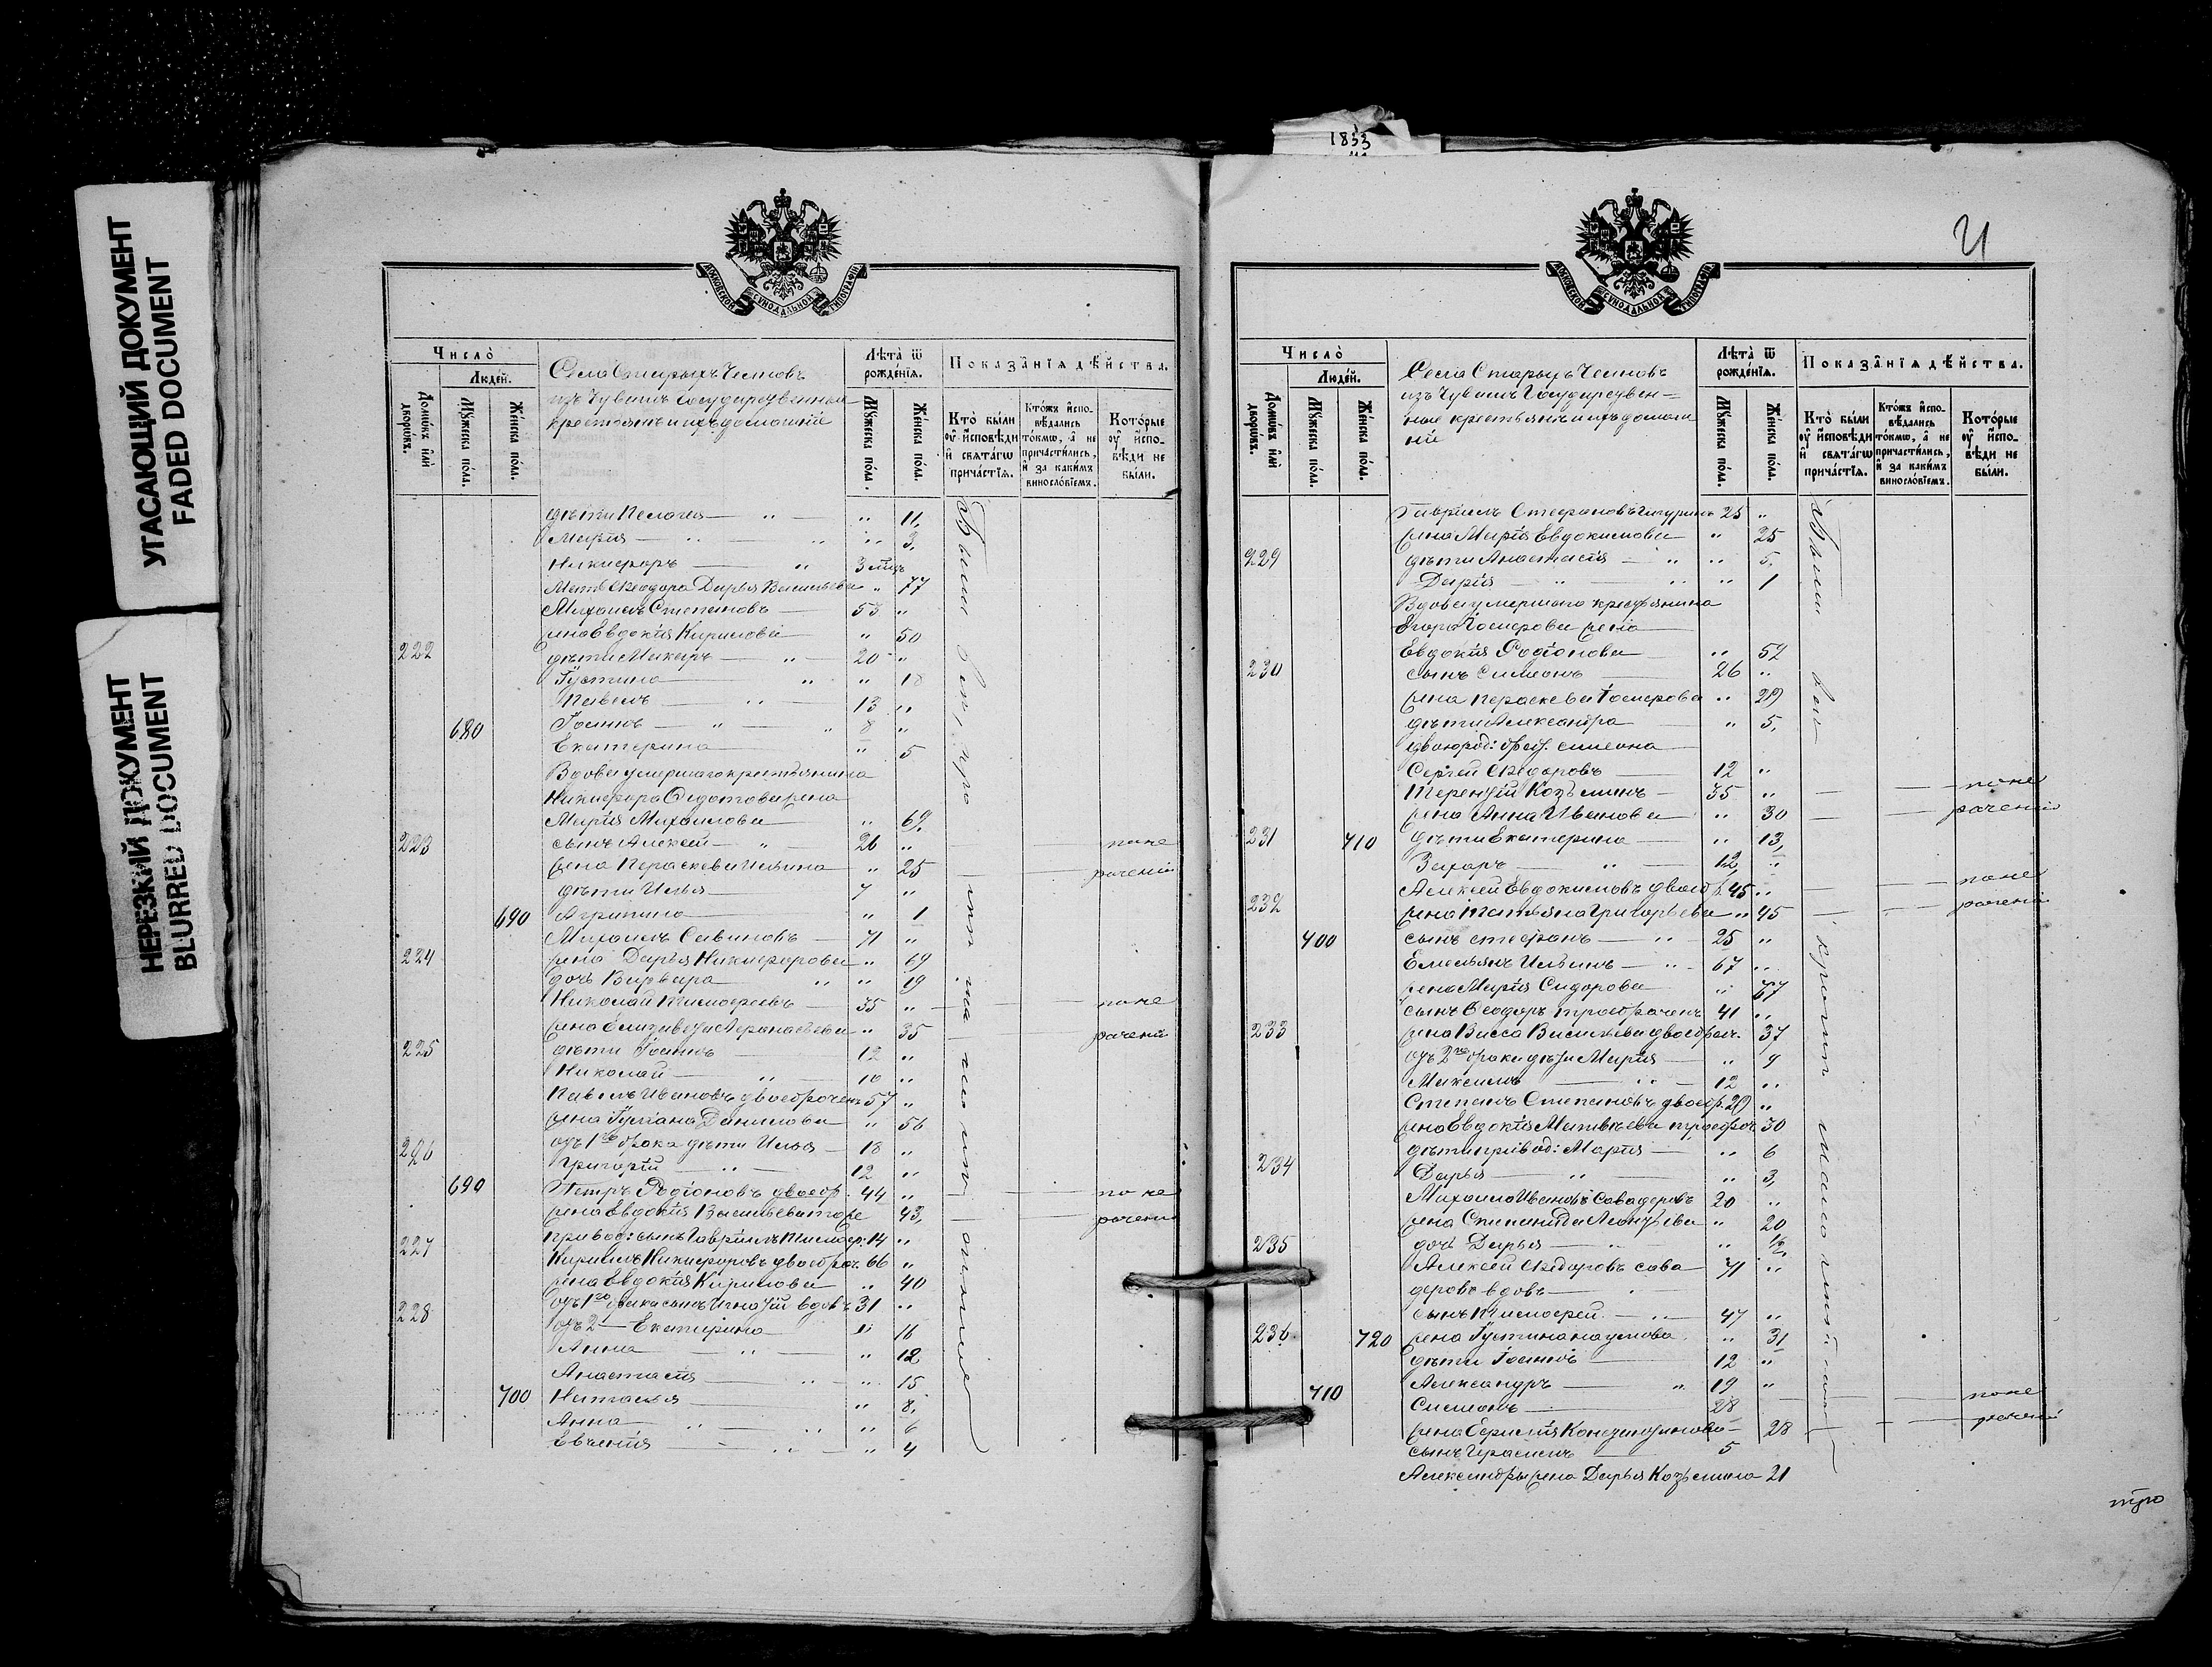 УГАСАЮЩИЙ ДОКУМЕНТ
FADED DOCUMENT
НЕРЕЗКИЙ ДОКУМЕНТ
BLURRED DOCUMENT
1833
МОСКОВСКОЙ СѴНОДАЛЬНОЙ ТИПОГРАФІИ
Число̀
Людей.
Домѡвъ и҆лѝ дворѡвъ.
Мꙋ́жеска по́ла.
Же́нска по́ла.
Села Старыхъ Челновъ
изъ Чувашъ государственные
крестьянъ и ихъ домашніи
Лѣта̀ ѿ рожде́нїѧ.
Мꙋ́жеска по́ла.
Же́нска по́ла.
Показа̂нїѧ дѣ́йства.
Кто̀ бы́ли оу҆ и҆сповѣди и҆ свѧта́гѡ прича́стїѧ.
Кто́жъ и҆спо- вѣдались то́кмѡ, а҆ не причасти́лись, и҆ за каки́мъ винослові́емъ.
Кото́рые оу҆ и҆спо- вѣди не бы́ли.
дѣти Пелогея 11
Марія 3
Никифоръ 3 мѣц
Мать Ѳеодора Дарья Васильева 77
Михаилъ Степановъ 53
жена Евдокія Кирилова 50
222 дѣти Макаръ 20
Густина 18
Павелъ 13
680 Іоаннъ 8
Екатерина 5
Вдова умершаго крестьянина
Никифора Федотова жена
Марія Михаилова 69
223 сынъ Алексей 26 по не
жена Параскева Ильина 25 раченію
дѣти Илья 7
690 Агрипина 1
Михаилъ Савиновъ 71
224 жена Дарья Никифорова 69
дочь Варвара 19
Николай Тимофеевъ 35 по не
жена Елизавета Афанасьева 35 раченію
225 дѣти Іоаннъ 12
Николай 10
Павелъ Ивановъ двоебраченъ 57
жена Гулиана Данилова 56
226 отъ 1го брака дѣти Илья 18
Григорій 12
690 Петръ Родіоновъ двоебр. 44 по не
жена Евдокія Васильева тоже 43 раченію
227 привод: сынъ Гавріилъ Тимоф: 14
Кирилъ Никифоровъ двоебрач. 66
жена Евдокія Кирилова 40
228 отъ 1го брака сынъ Игнатій вдовъ 31
отъ 2 Екатерина 16
Анна 12
Анастасія 15
700 Наталья 8
Анна 6
Евгенія 4
Были
21
Число̀
Людей.
Домѡвъ и҆лѝ дворѡвъ.
Мꙋ́жеска по́ла.
Же́нска по́ла.
Села Старыхъ Челновъ
изъ Чувашъ Государствен=
ные крестьянъ и ихъ домаш
ніи
Лѣта̀ ѿ рожде́нїѧ.
Мꙋ́жеска по́ла.
Же́нска по́ла.
Показа̂нїѧ дѣ́йства.
Кто̀ бы́ли оу҆ и҆сповѣди и҆ свѧта́гѡ прича́стїѧ.
Кто́жъ и҆спо- вѣдались то́кмѡ, а҆ не причасти́лись, и҆ за каки́мъ винослові́емъ.
Кото́рые оу҆ и҆спо- вѣди не бы́ли.
Гавріилъ Стефановъ 25
жена Марія Евдокимова 25
229 дѣти Анастасія 5
Дарія 1
Вдова умершаго крестьянина
Егора Іосифова жена
Евдокія Родіонова 52
230 сынъ Симеонъ 26
жена Параскева Іосифова 29
дѣти Александра 5
двоюрод: брат. симеона
Сергей Ѳедоровъ 12
Терентій Козьминъ 35 по не
жена Анна Иванова 30 раченію
231 710 дѣти Екатерина 13
Захаръ 12
Алексей Евдокимовъ двоебр. 45 по не
232 жена Татьяна Григорьева 45 раченію
700 сынъ стефанъ 25
Емельянъ Ильинъ 67
жена Марія Сидорова 67
сынъ Ѳеодоръ троебраченъ 41
233 жена Васса Васильева двоебрач. 37
отъ 2го брака дѣти Марія 9
Максимъ 12
Степанъ Степановъ двоебр. 29
жена Евдокія Матвѣева троебрач 30
дѣти привод: Марія 6
234 Дарья 3
Михаило Ивановъ Савадеровъ 20
жена Степанида Леонтьева 20
235 дочь Дарья ½
Алексей Ѳедоровъ сава 71
деровъ вдовъ
сынъ Тимофей 47
236 720 жена Густина наумова 31
дѣти Іоаннъ 12
710 Александръ 19
Симеонъ 28 по не
жена Ефимія Константинова 28 раченію
сынъ Герасимъ 5
Александры жена Дарья Козьмина 21
Были все